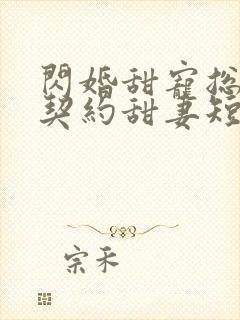 閃婚甜寵総
契約甜妻短
宗采